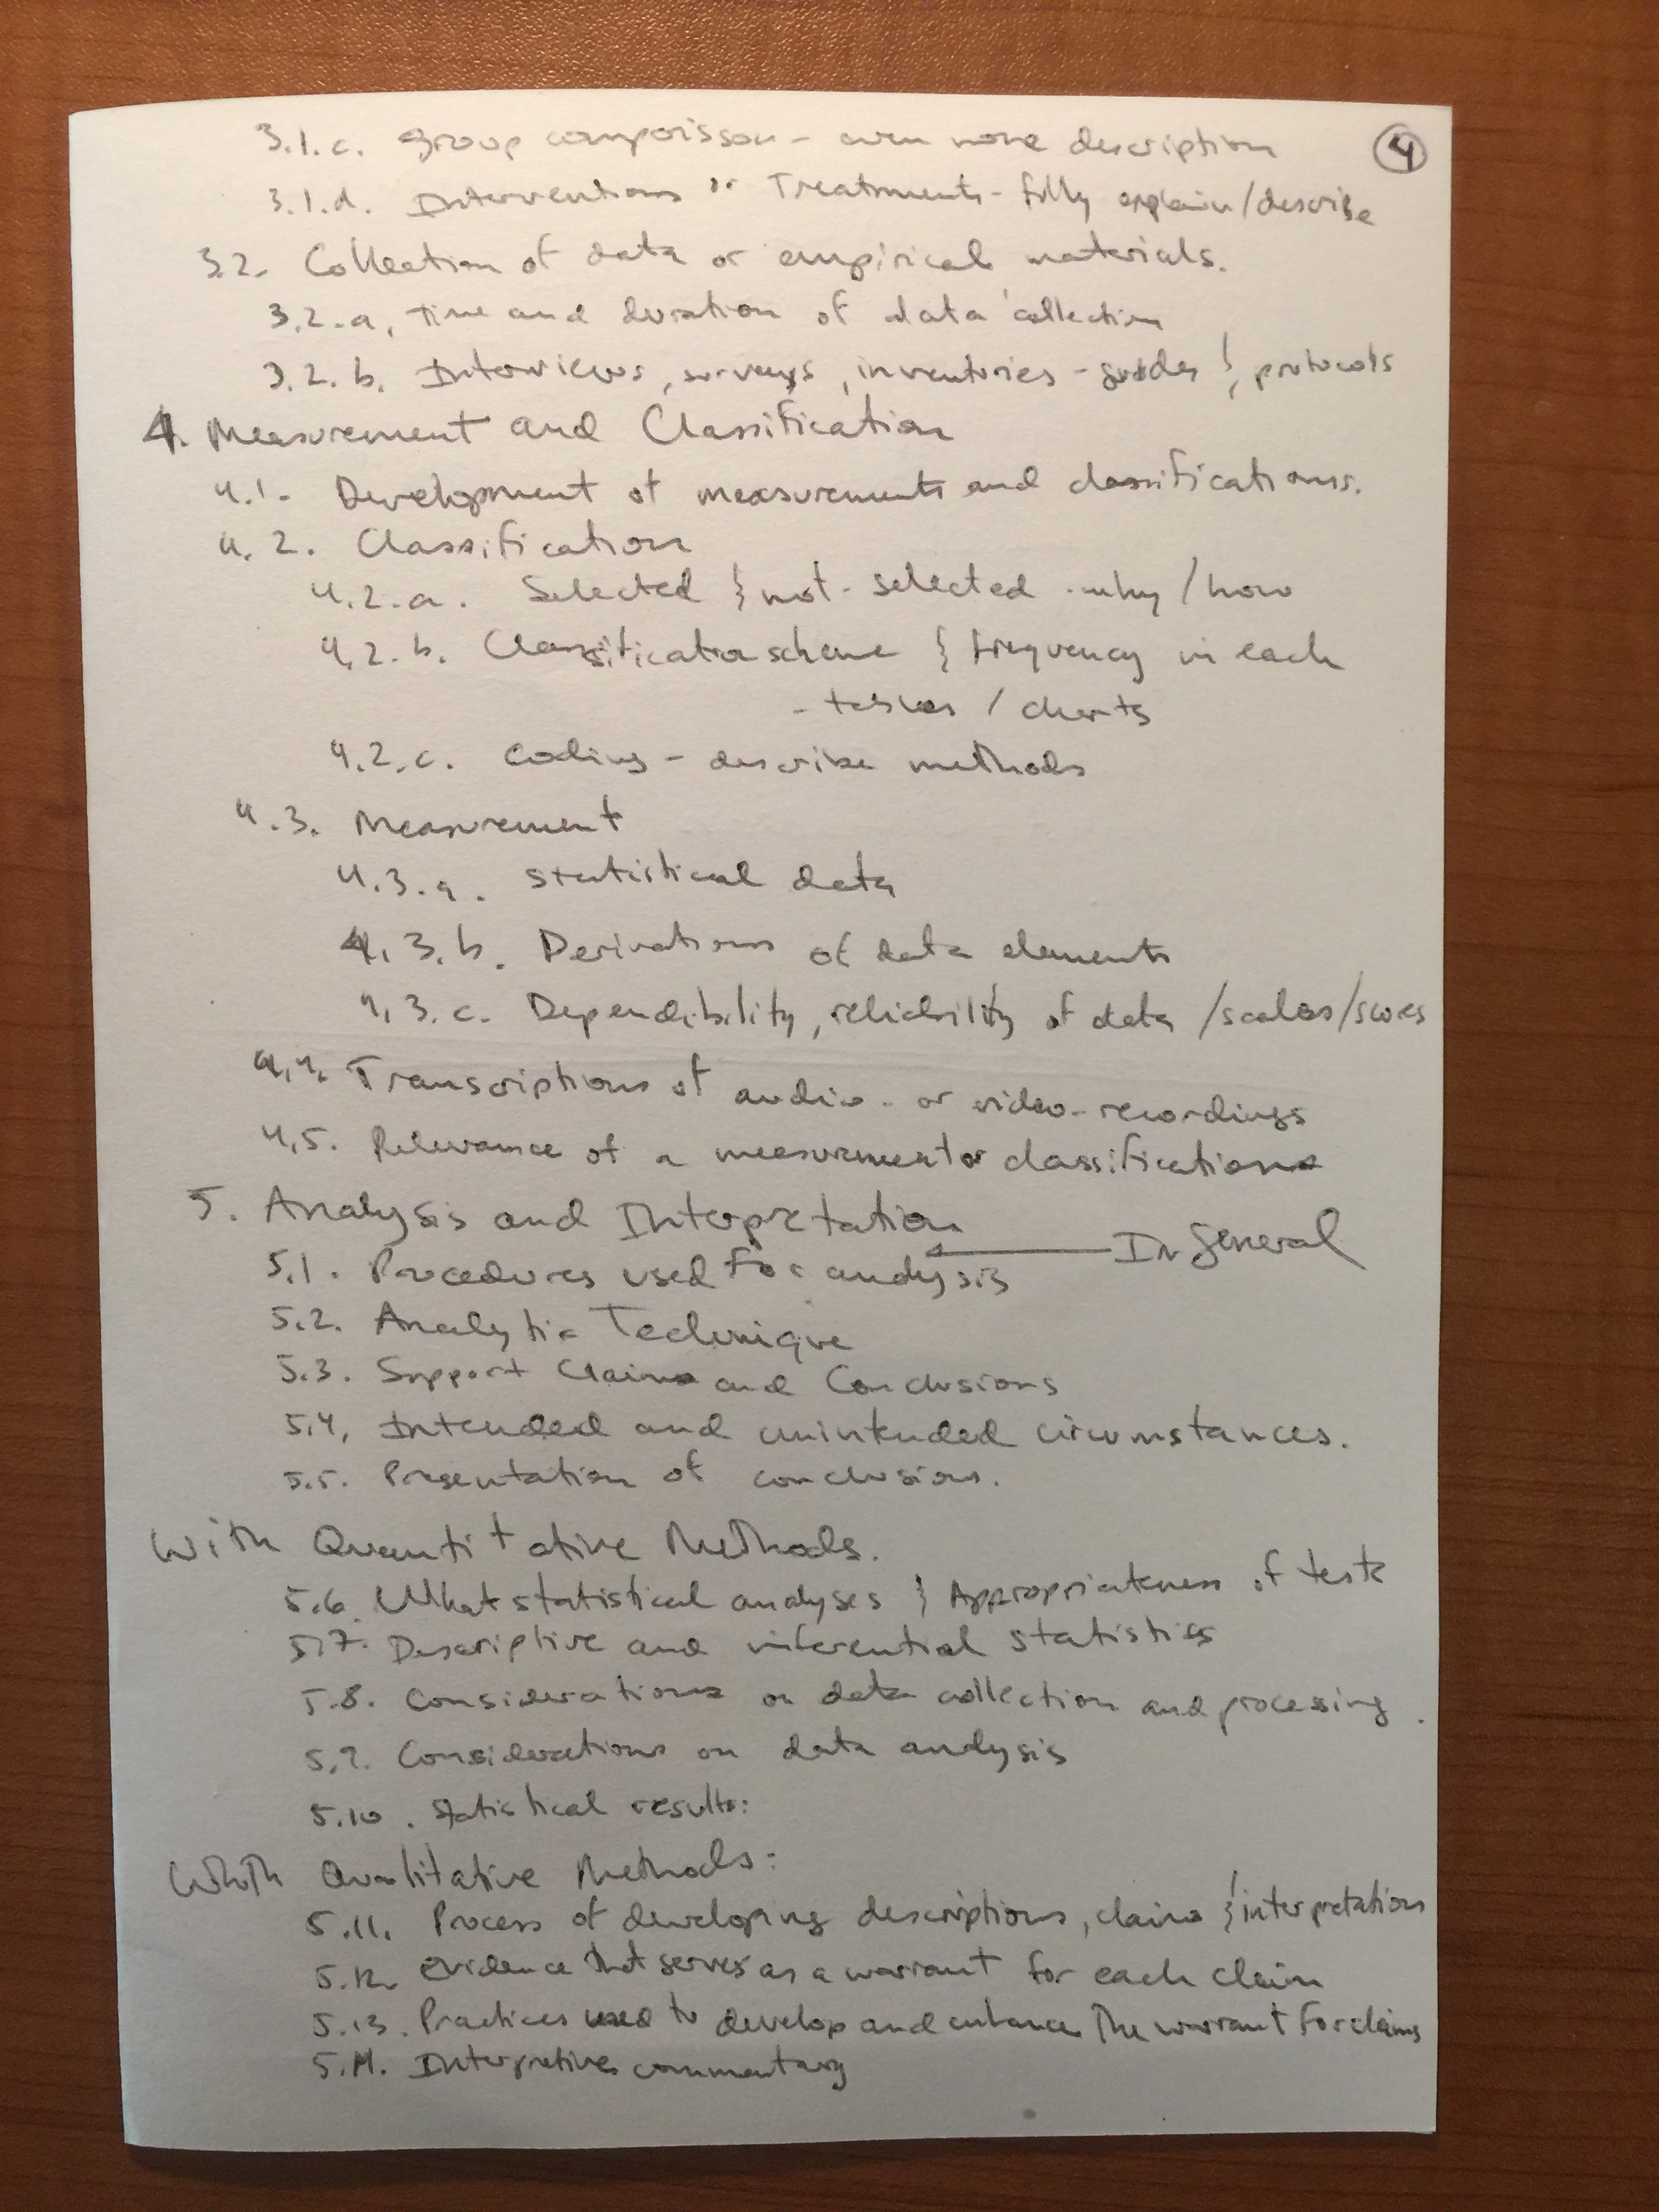 3.1.c. Group comparisson - even more description
④
3.1.d. Interventions or Treatments - fully explain/describe
3.2. Collection of data or empirical materials.
3.2.a. Time and duration of data collection
3.2.b. Interviews, surveys, inventories - guides & protocols
4. Measurement and Classification
4.1. Development of measurements and classifications.
4.2. Classification
4.2.a. Selected & not-selected - why/how
4.2.b. Classification scheme & frequency in each
- tables / charts
4.2.c. Coding - describe methods
4.3. Measurement
4.3.a. Statistical data
4.3.b. Derivations of data elements
4.3.c. Dependibility, reliability of data /scales/scores
4.4. Transcriptions of audio- or video-recordings
4.5. Relevance of a measurement or classifications
5. Analysis and Interpretation
In General
5.1. Procedures used for analysis
5.2. Analytic Technique
5.3. Support Claims and Conclusions
5.4. Intended and unintended circumstances.
5.5. Presentation of conclusions.
With Quantitative Methods.
5.6. What statistical analyses & Appropriateness of tests
5.7. Descriptive and inferential statistics
5.8. Considerations on data collection and processing.
5.9. Considerations on data analysis
5.10. Statistical results:
With Qualitative Methods:
5.11. Process of developing descriptions, claims & interpretations
5.12. Evidence that serves as a warrant for each claim
5.13. Practices used to develop and enhance the warrant for claims
5.14. Interpretive commentary